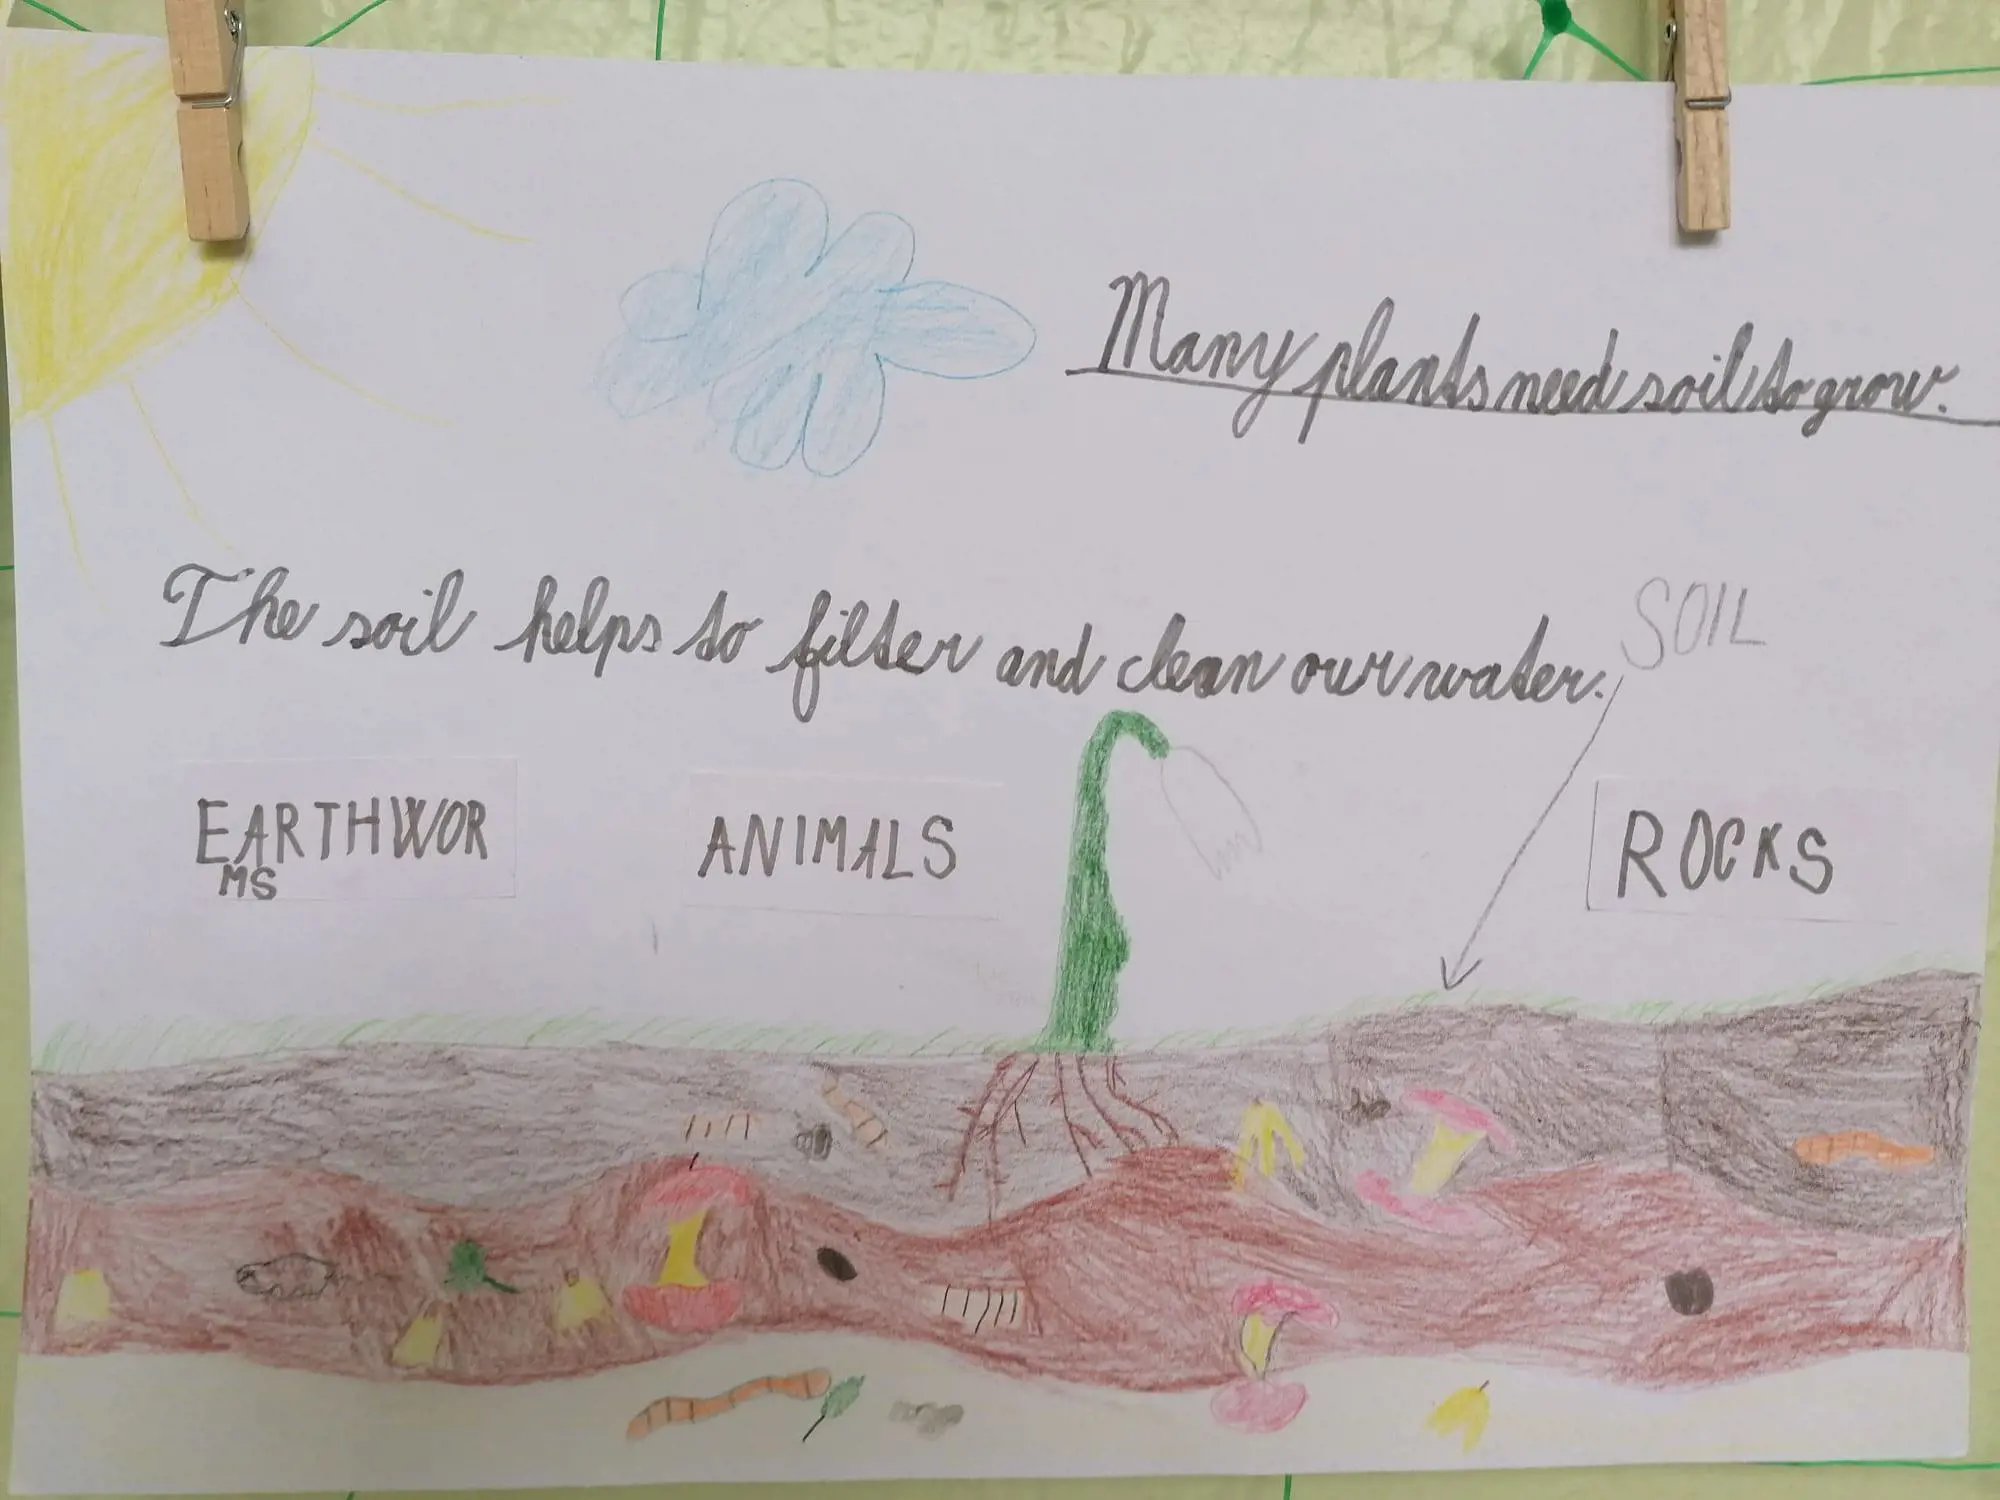 Many plants need soil to grow.
The soil helps to filter and clean our water.
SOIL
EARTHWOR
MS
ANIMALS
ROCKS